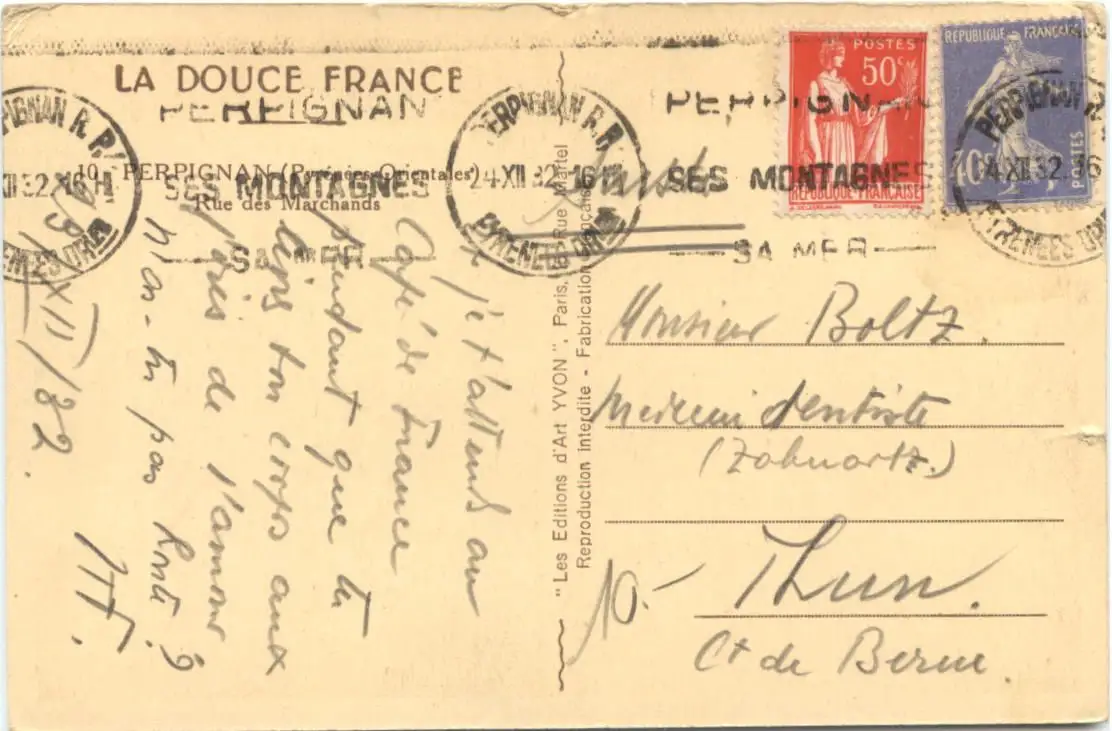 LA DOUCE FRANCE
PERPIGNAN
SES MONTAGNES
SA MER
10. - PERPIGNAN (Pyrénées-Orientales)
Rue des Marchands
PERPIGNAN R.P.
24 XII 32 16
PYRENEES
PERPIGNAN
SES MONTAGNES
SA MER
POSTES
50c
REPUBLIQUE FRANÇAISE
REPUBLIQUE FRANÇAISE
40c
POSTES
PERPIGNAN R.P.
24 XII 32 16
PYRENEES
je t'attends au
Café de France
pendant que tu
ton corps aux
de l'amour
N'as-tu pas honte?
H.
XII/32.
"Les Editions d'Art YVON", Paris, Rue Martel
Reproduction interdite - Fabrication Française
Suisse
Monsieur Boltz.
Médecin dentiste
(Zahnartz.)
Thun.
Ct de Berne.
10.-